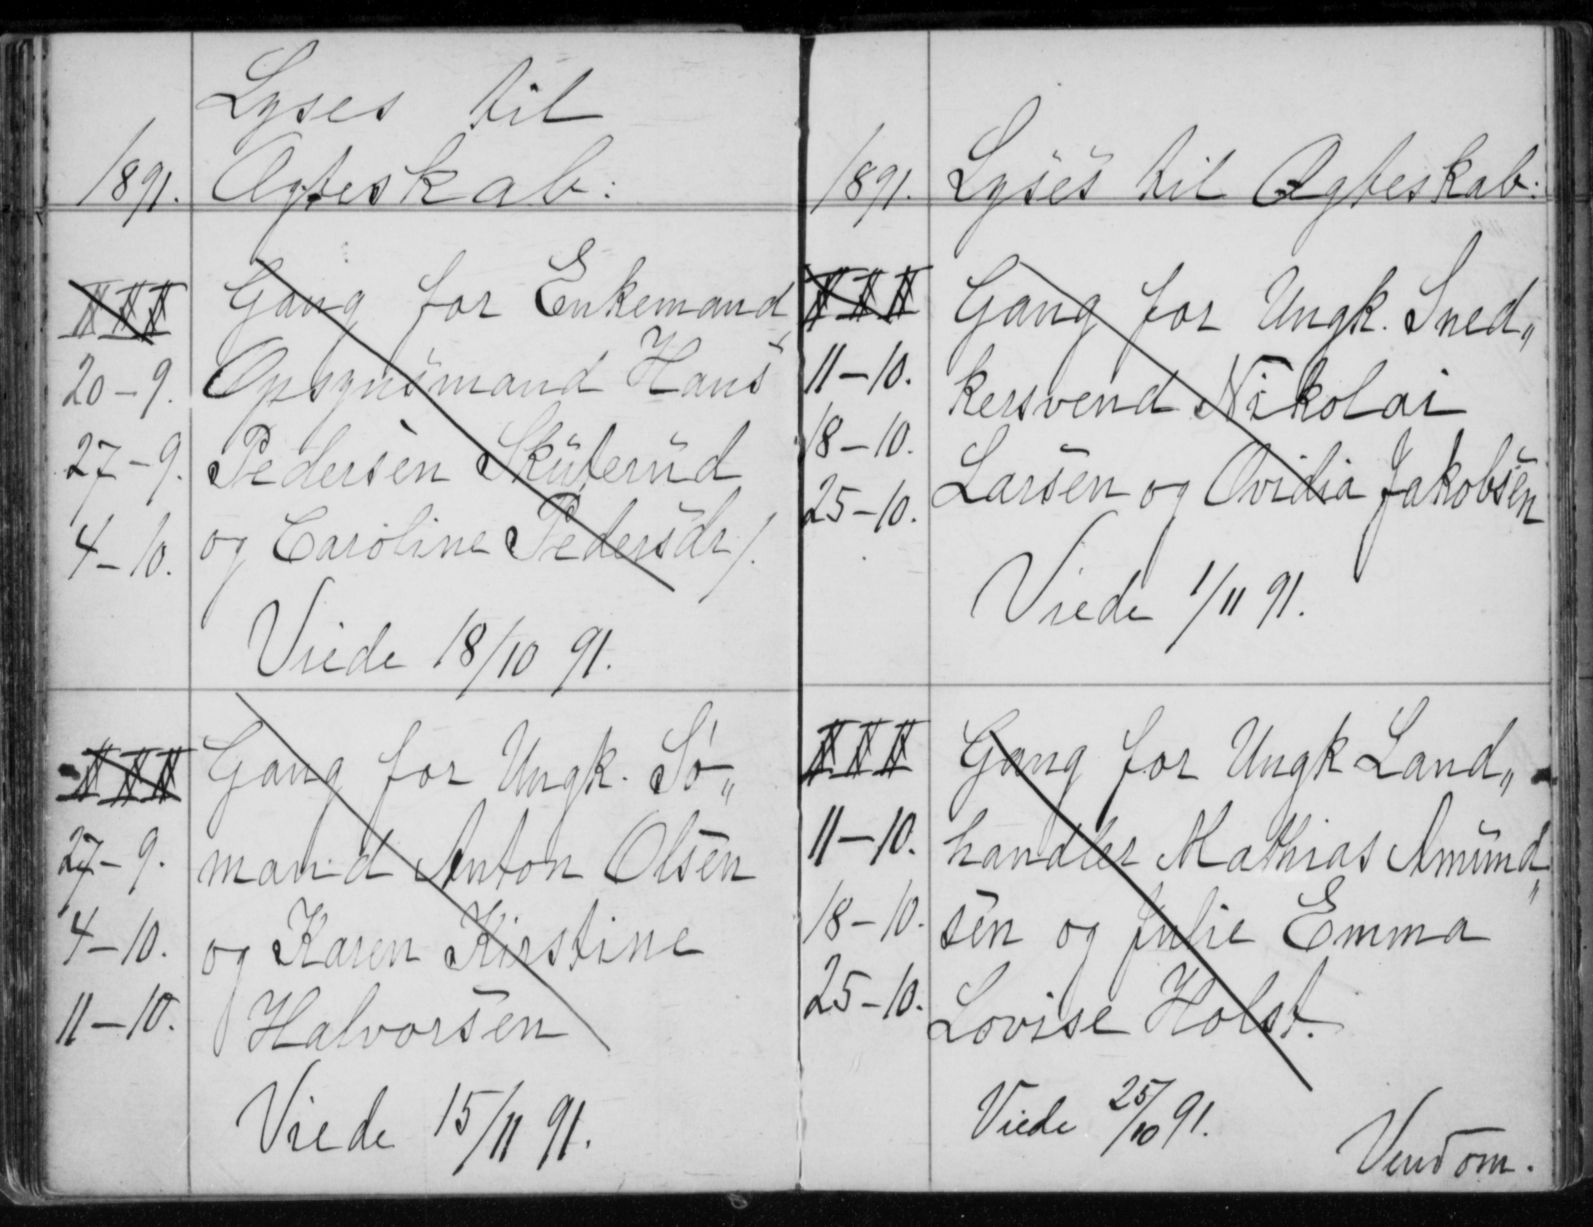 Lyses til
1891. Ægteskab:
III Gang for Enkemand,
20-9. Opsynsmand Hans
27-9. Pedersen Skuterud
4-10. og Caroline Pedersdr/.
Viede 18/10 91.
III Gang for Ungk. Sø„
27-9. mand Anton Olsen
4-10. og Karen Kirstine
11-10. Halvorsen
Viede 15/11 91.
1891. Lyses til Ægteskab:
III Gang for Ungk. Sned„
11-10. kersvend Nikolai
18-10. Larsen og Ovidia Jakobsen
25-10.
Viede 1/11 91.
III Gang for Ungk Land„
11-10. handler Mathias Amund„
18-10. sen og Julie Emma
25-10. Lovise Holst.
Viede 25/10 91.
Vend om.